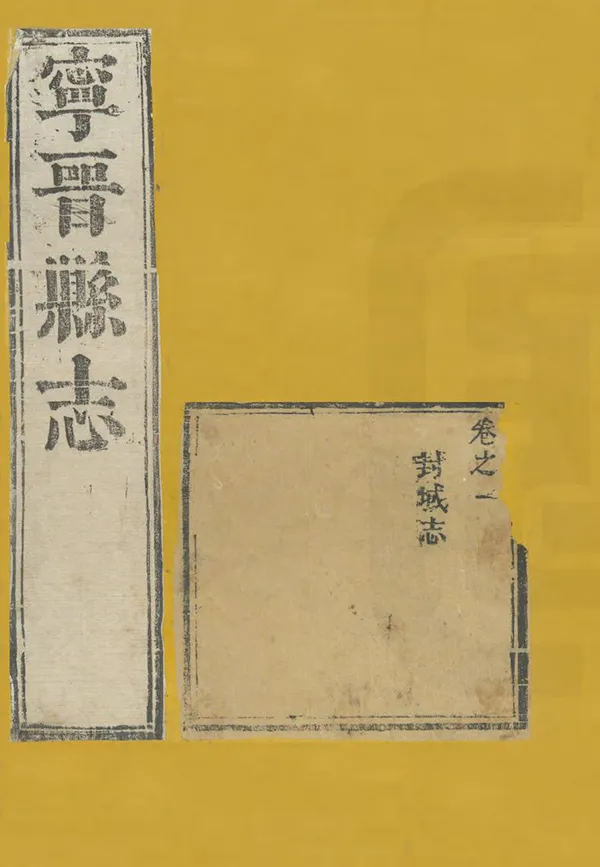 寧晋縣志
卷之一
封域志